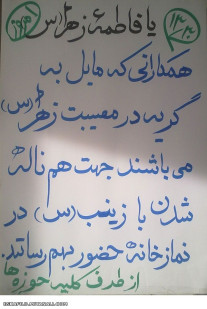 یا فاطمهٔ زهرا(س)
همکارانی که مایل به
گریه در مصیبت زهرا(س)
می باشند جهت هم ناله
شدن با زینب(س) در
نمازخانه حضور بهم رسانند.
از طرف کلیه حوزه ها